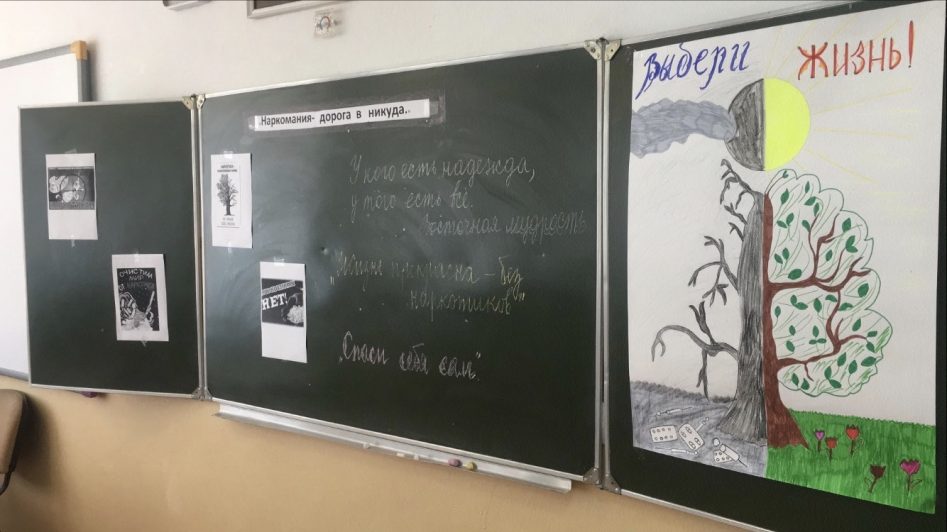 ОЧИСТИМ
МИР
„Наркомания- дорога в никуда."
НЕТ!
У кого есть надежда,
у того есть всё.
Восточная мудрость
„Жизнь прекрасна – без
наркотиков"
„Спаси себя сам".
Выбери жизнь!